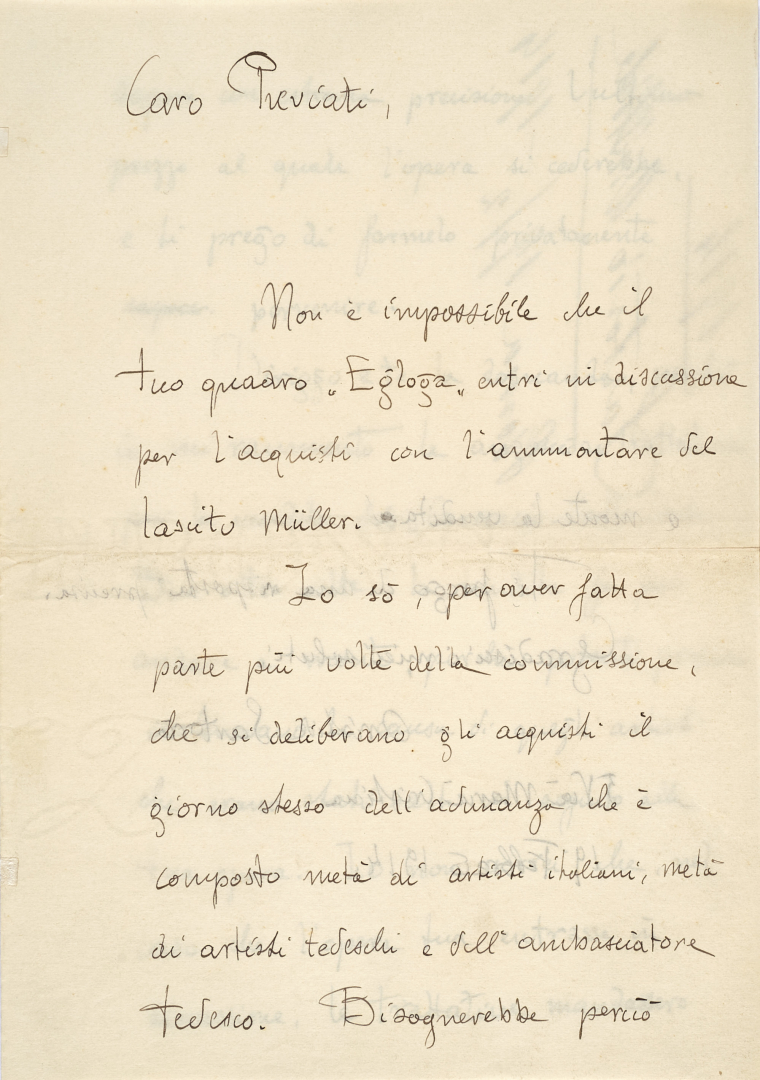 Caro Previati,
Non è impossibile che il
tuo quadro „Egloga„ entri in discussione
per l'acquisti con l'ammontare del
lascito Müller.
Io sò, per aver fatta
parte più volte della commissione,
che si deliberano gli acquisti il
giorno stesso dell'adunanza che è
composto metà di artisti italiani, metà
di artisti tedeschi e dell'ambasciatore
tedesco. Bisognerebbe perciò